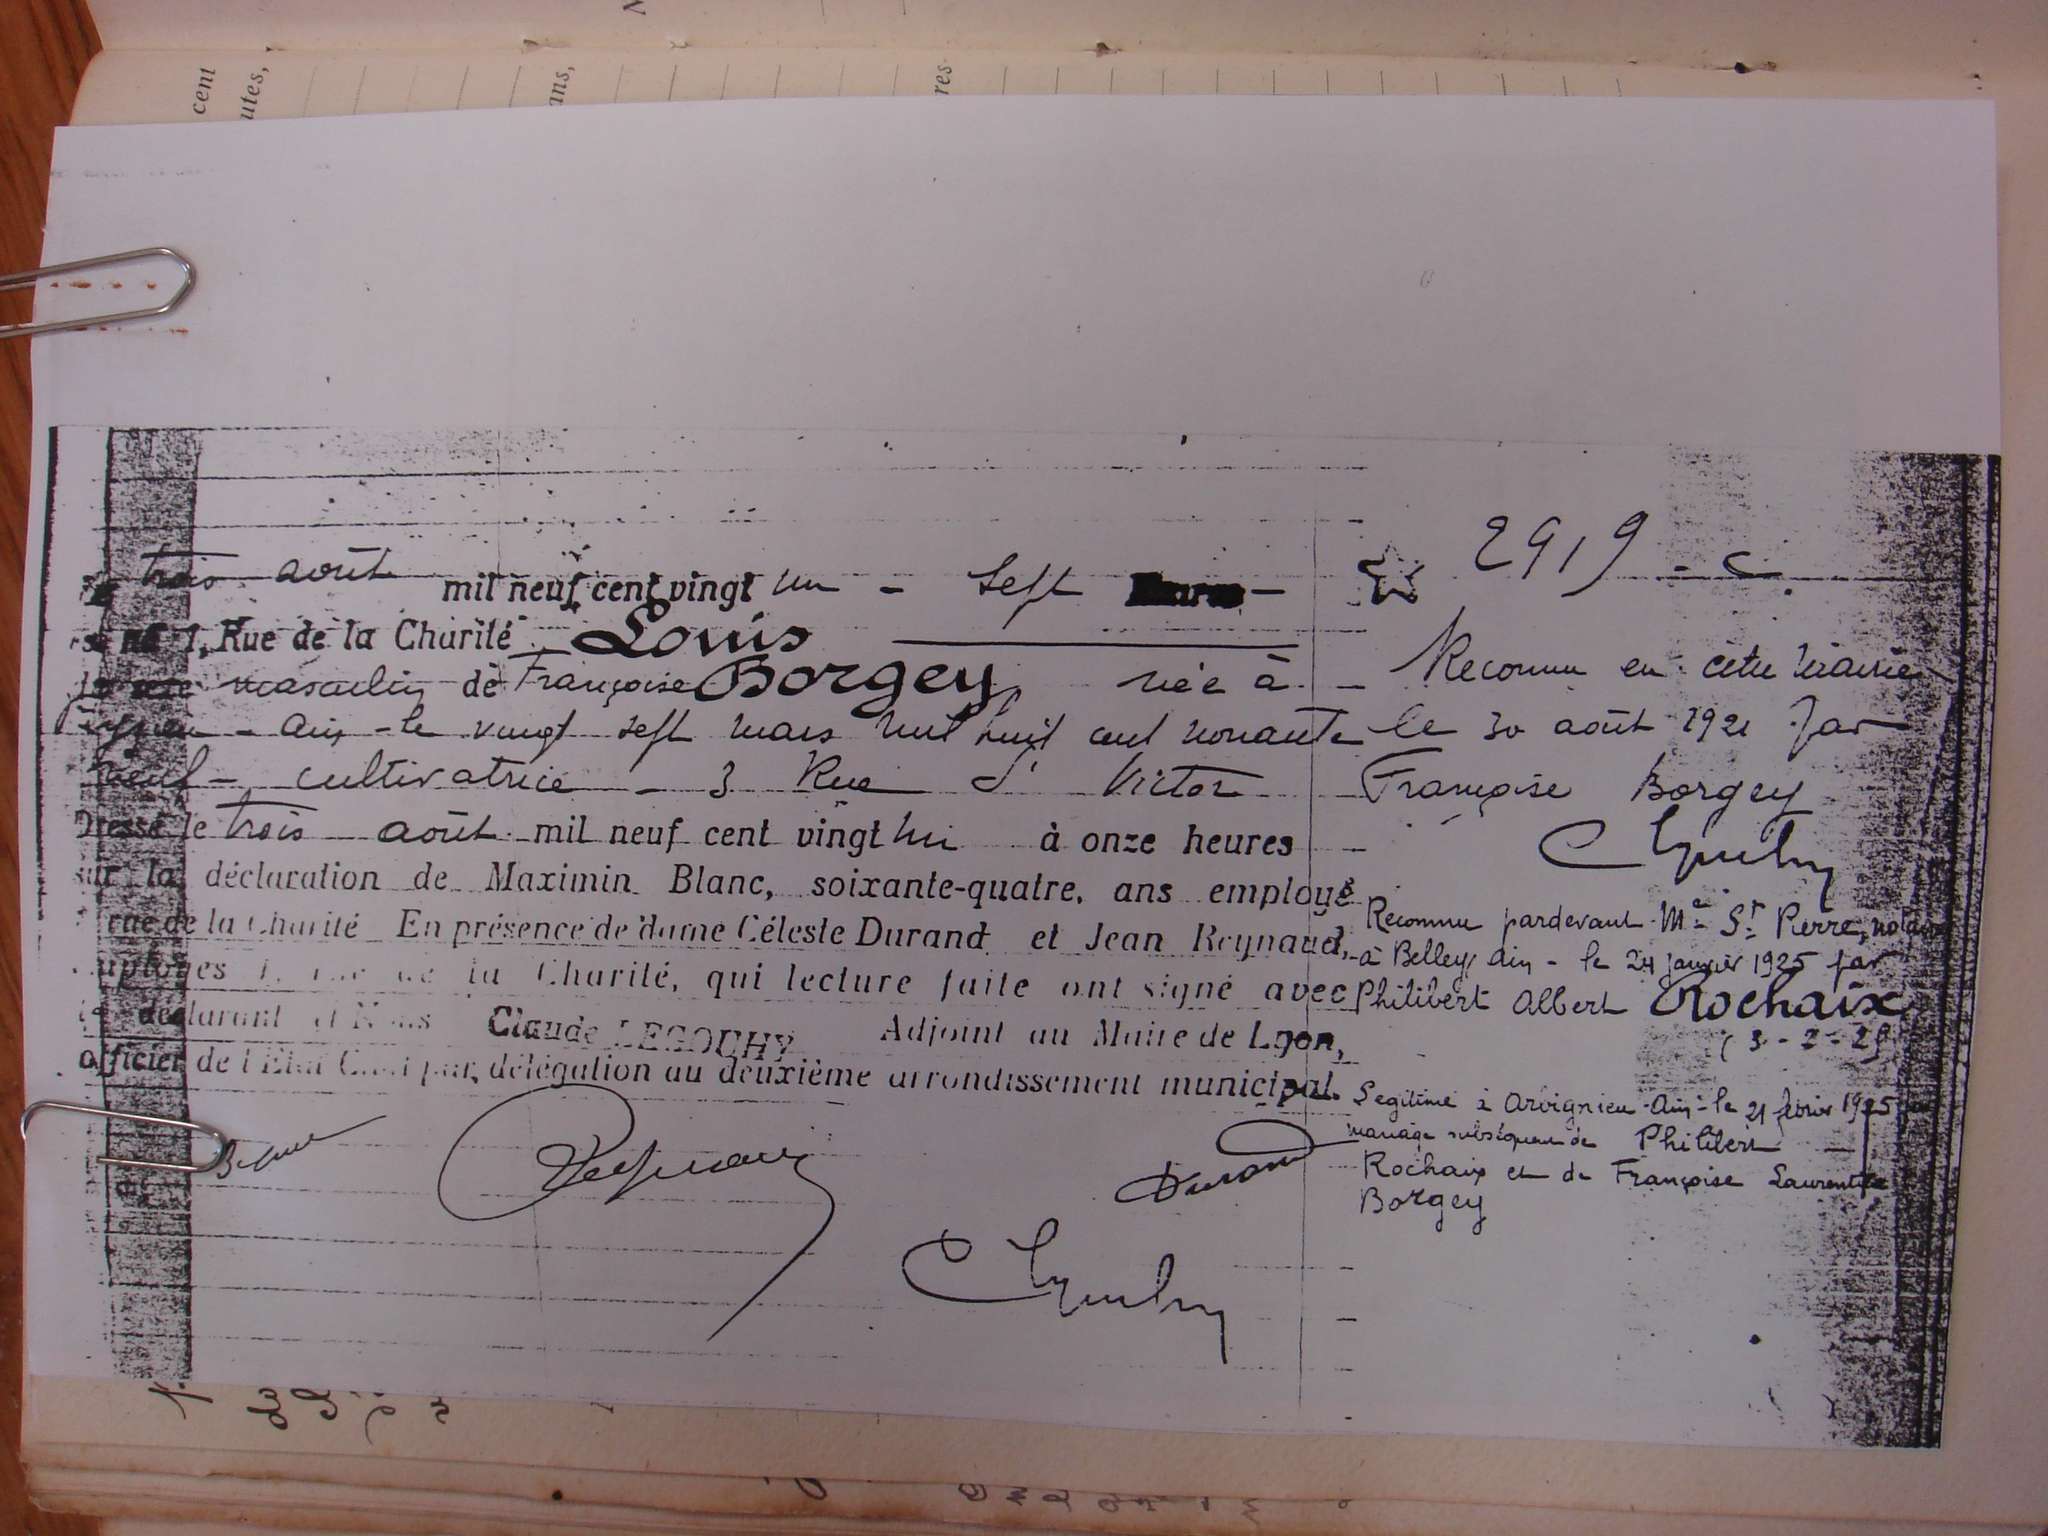 cent
utes,
ans,
res
trois août mil neuf cent vingt un - sept
1, Rue de la Charité Louis
masculin de Françoise Borgey née à
- ain - le vingt sept mars mil huit cent nonante
neuf - cultivatrice - 3 Rue St Victor
Dressé le trois août mil neuf cent vingt un à onze heures
sur la déclaration de Maximin Blanc, soixante-quatre, ans employé
rue de la Charité En présence de dame Céleste Durand et Jean Reynaud,
employés 1, rue de la Charité, qui lecture faite ont signé avec
le déclarant et Nous Claude LEGOUHY Adjoint au Maire de Lyon,
officier de l'Etat Civil par délégation au deuxième arrondissement municipal.
Reynaud
Durand
2919 - C
Reconnu en cette Mairie
le 30 août 1921 par
Françoise Borgey
Reconnu pardevant Me St Pierre, notaire
à Belley, Ain - le 24 janvier 1925 par
Philibert Albert Rochaix
(3-2-25
Légitimé à Arvignieu - Ain - le 21 février 1925 par
mariage subséquent de Philibert
Rochaix et de Françoise Laurentine
Borgey